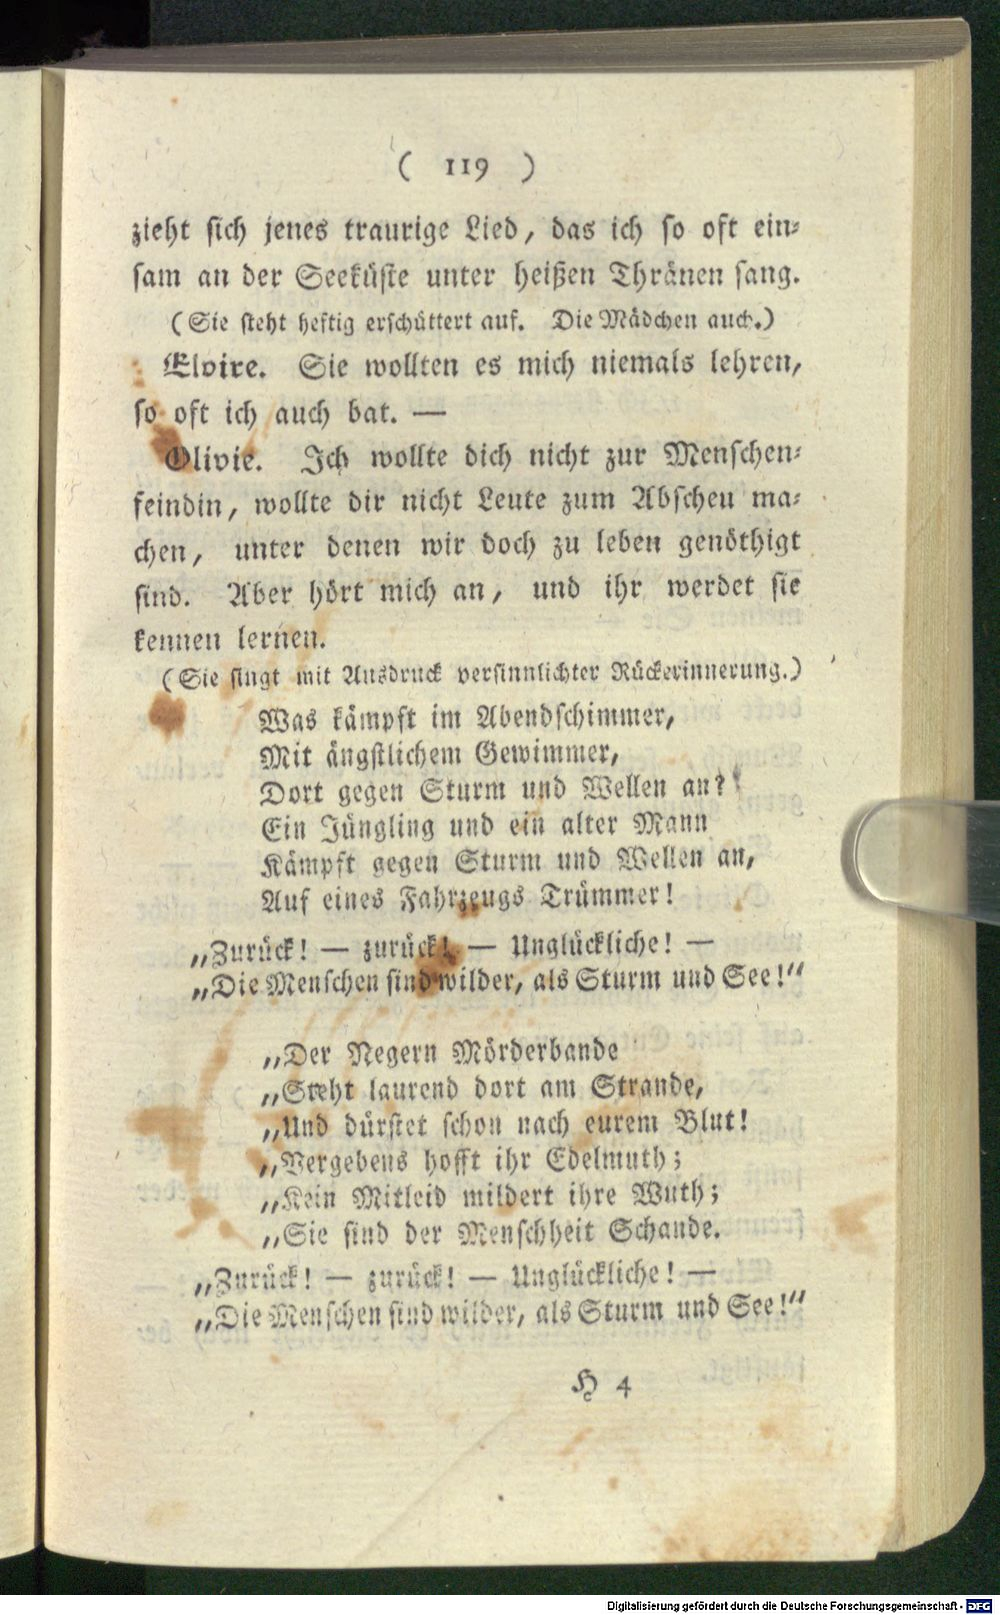 ( 119 )
zieht sich jenes traurige Lied, das ich so oft ein-
sam an der Seeküste unter heißen Thränen sang.
(Sie steht heftig erschüttert auf. Die Mädchen auch.)
Elvire. Sie wollten es mich niemals lehren,
so oft ich auch bat. —
Olivie. Ich wollte dich nicht zur Menschen-
feindin, wollte dir nicht Leute zum Abscheu ma-
chen, unter denen wir doch zu leben genöthigt
sind. Aber hört mich an, und ihr werdet sie
kennen lernen.
(Sie singt mit Ausdruck versinnlichter Rückerinnerung.)
Was kämpft im Abendschimmer,
Mit ängstlichem Gewimmer,
Dort gegen Sturm und Wellen an?
Ein Jüngling und ein alter Mann
Kämpft gegen Sturm und Wellen an,
Auf eines Fahrzeugs Trümmer!
„Zurück! — zurück! — Unglückliche! —
„Die Menschen sind wilder, als Sturm und See!“
„Der Negern Mörderbande
„Steht laurend dort am Strande,
„Und dürstet schon nach eurem Blut!
„Vergebens hofft ihr Edelmuth;
„Kein Mitleid mildert ihre Wuth;
„Sie sind der Menschheit Schande.
„Zurück! — zurück! — Unglückliche! —
„Die Menschen sind wilder, als Sturm und See!“
H 4
Digitalisierung gefördert durch die Deutsche Forschungsgemeinschaft - DFG